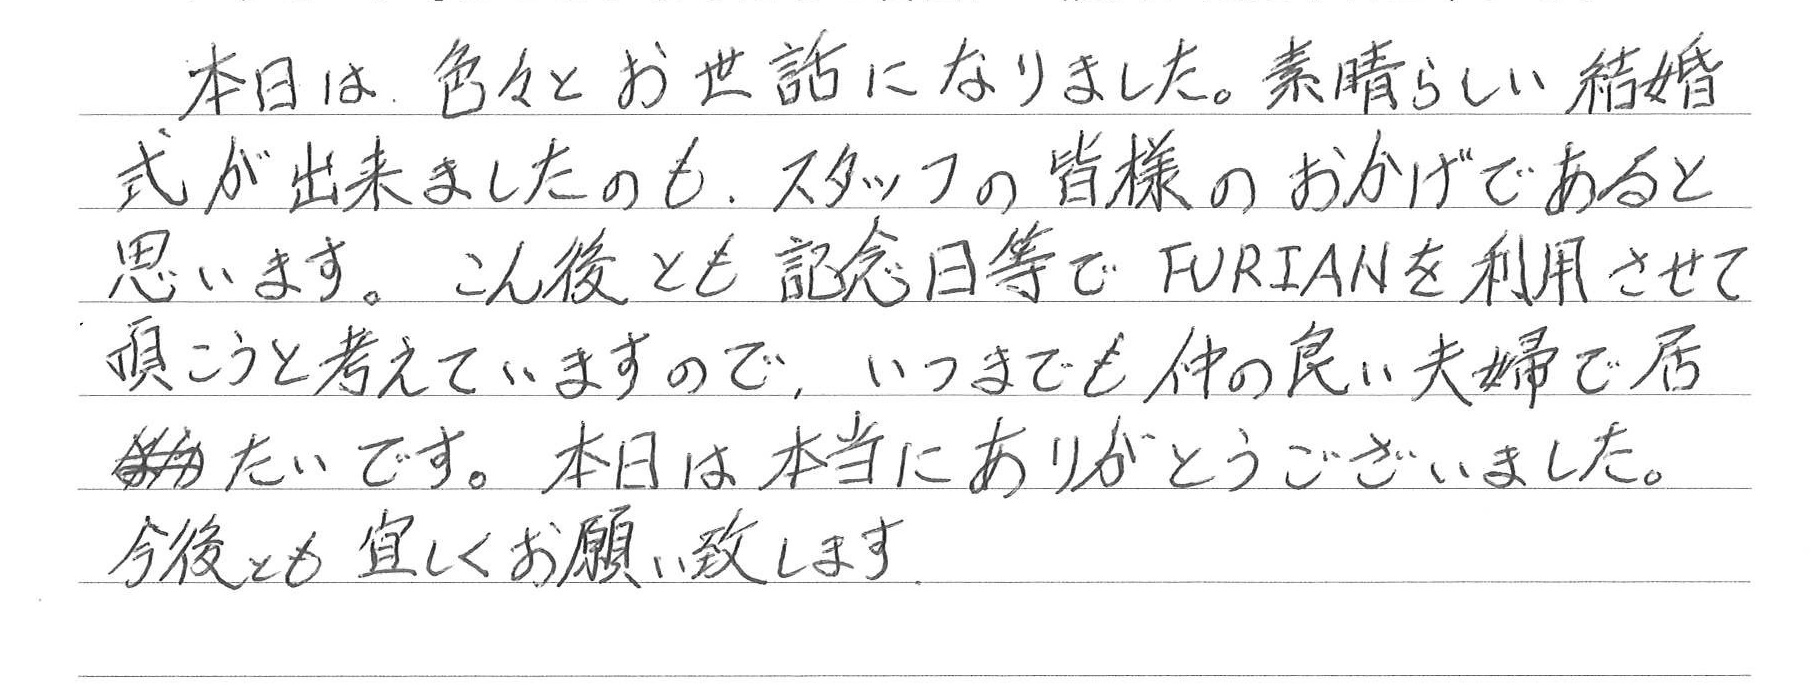 本日は、色々とお世話になりました。素晴らしい結婚
式が出来ましたのも、スタッフの皆様のおかげであると
思います。こん後とも記念日等でFURIANを利用させて
頂こうと考えていますので、いつまでも仲の良い夫婦で居
たいです。本日は本当にありがとうございました。
今後とも宜しくお願い致します.